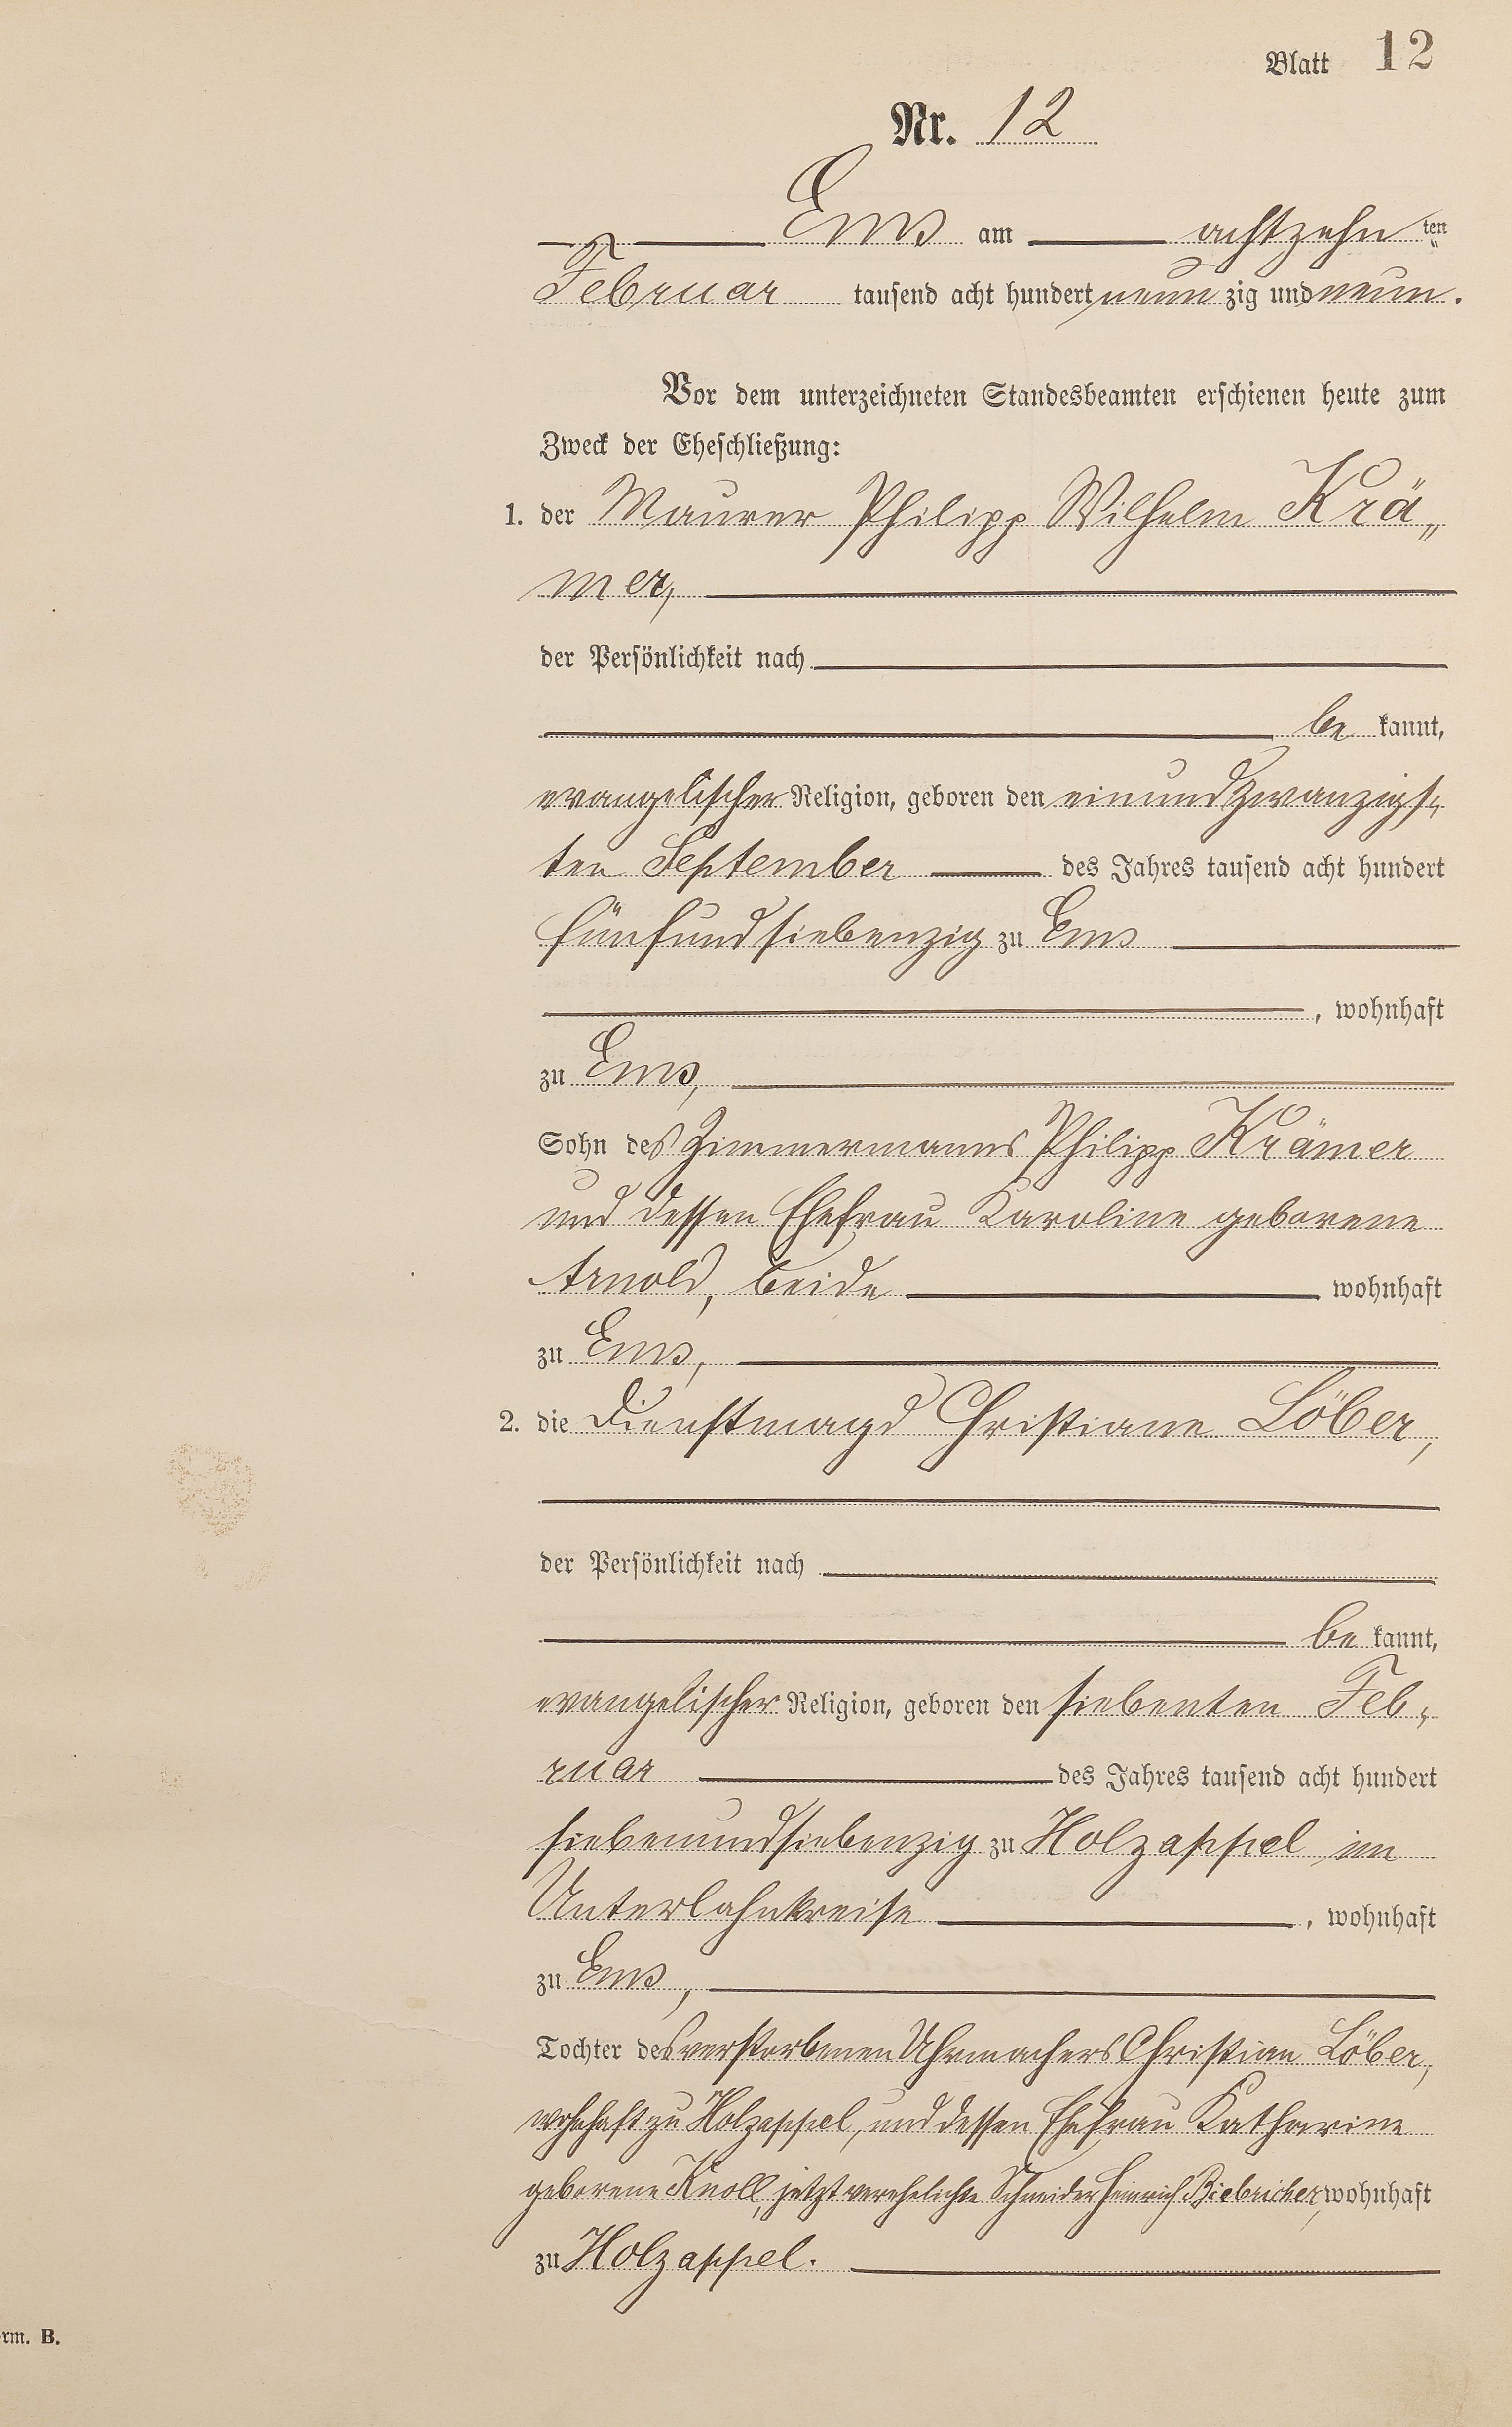 Blatt 12
Nr. 12
Ems am achtzehn ten
Februar tausend acht hundert neun zig und neun.
Vor dem unterzeichneten Standesbeamten erschienen heute zum
Zweck der Eheschließung:
1. der Maurer Philipp Wilhelm Krä„
mer,
der Persönlichkeit nach
be kannt,
evangelischer Religion, geboren den einundzwanzigs„
ten September des Jahres tausend acht hundert
fünfundsiebenzig zu Ems
, wohnhaft
zu Ems,
Sohn des Zimmermanns Philipp Krämer
und dessen Ehefrau Karoline geborene
Arnold, beide wohnhaft
zu Ems,
2. die Dienstmagd Christiane Löber,
der Persönlichkeit nach
be kannt,
evangelischer Religion, geboren den siebenten Feb„
ruar des Jahres tausend acht hundert
siebenundsiebenzig zu Holzappel im
Unterlahnkreise , wohnhaft
zu Ems,
Tochter des verstorbenen Uhrmachers Christian Löber,
wohnhaft zu Holzappel, und dessen Ehefrau Katharine
geborene Knoll, jetzt verehelichte Schneider Heinrich Biebricher, wohnhaft
zu Holzappel.
orm. B.